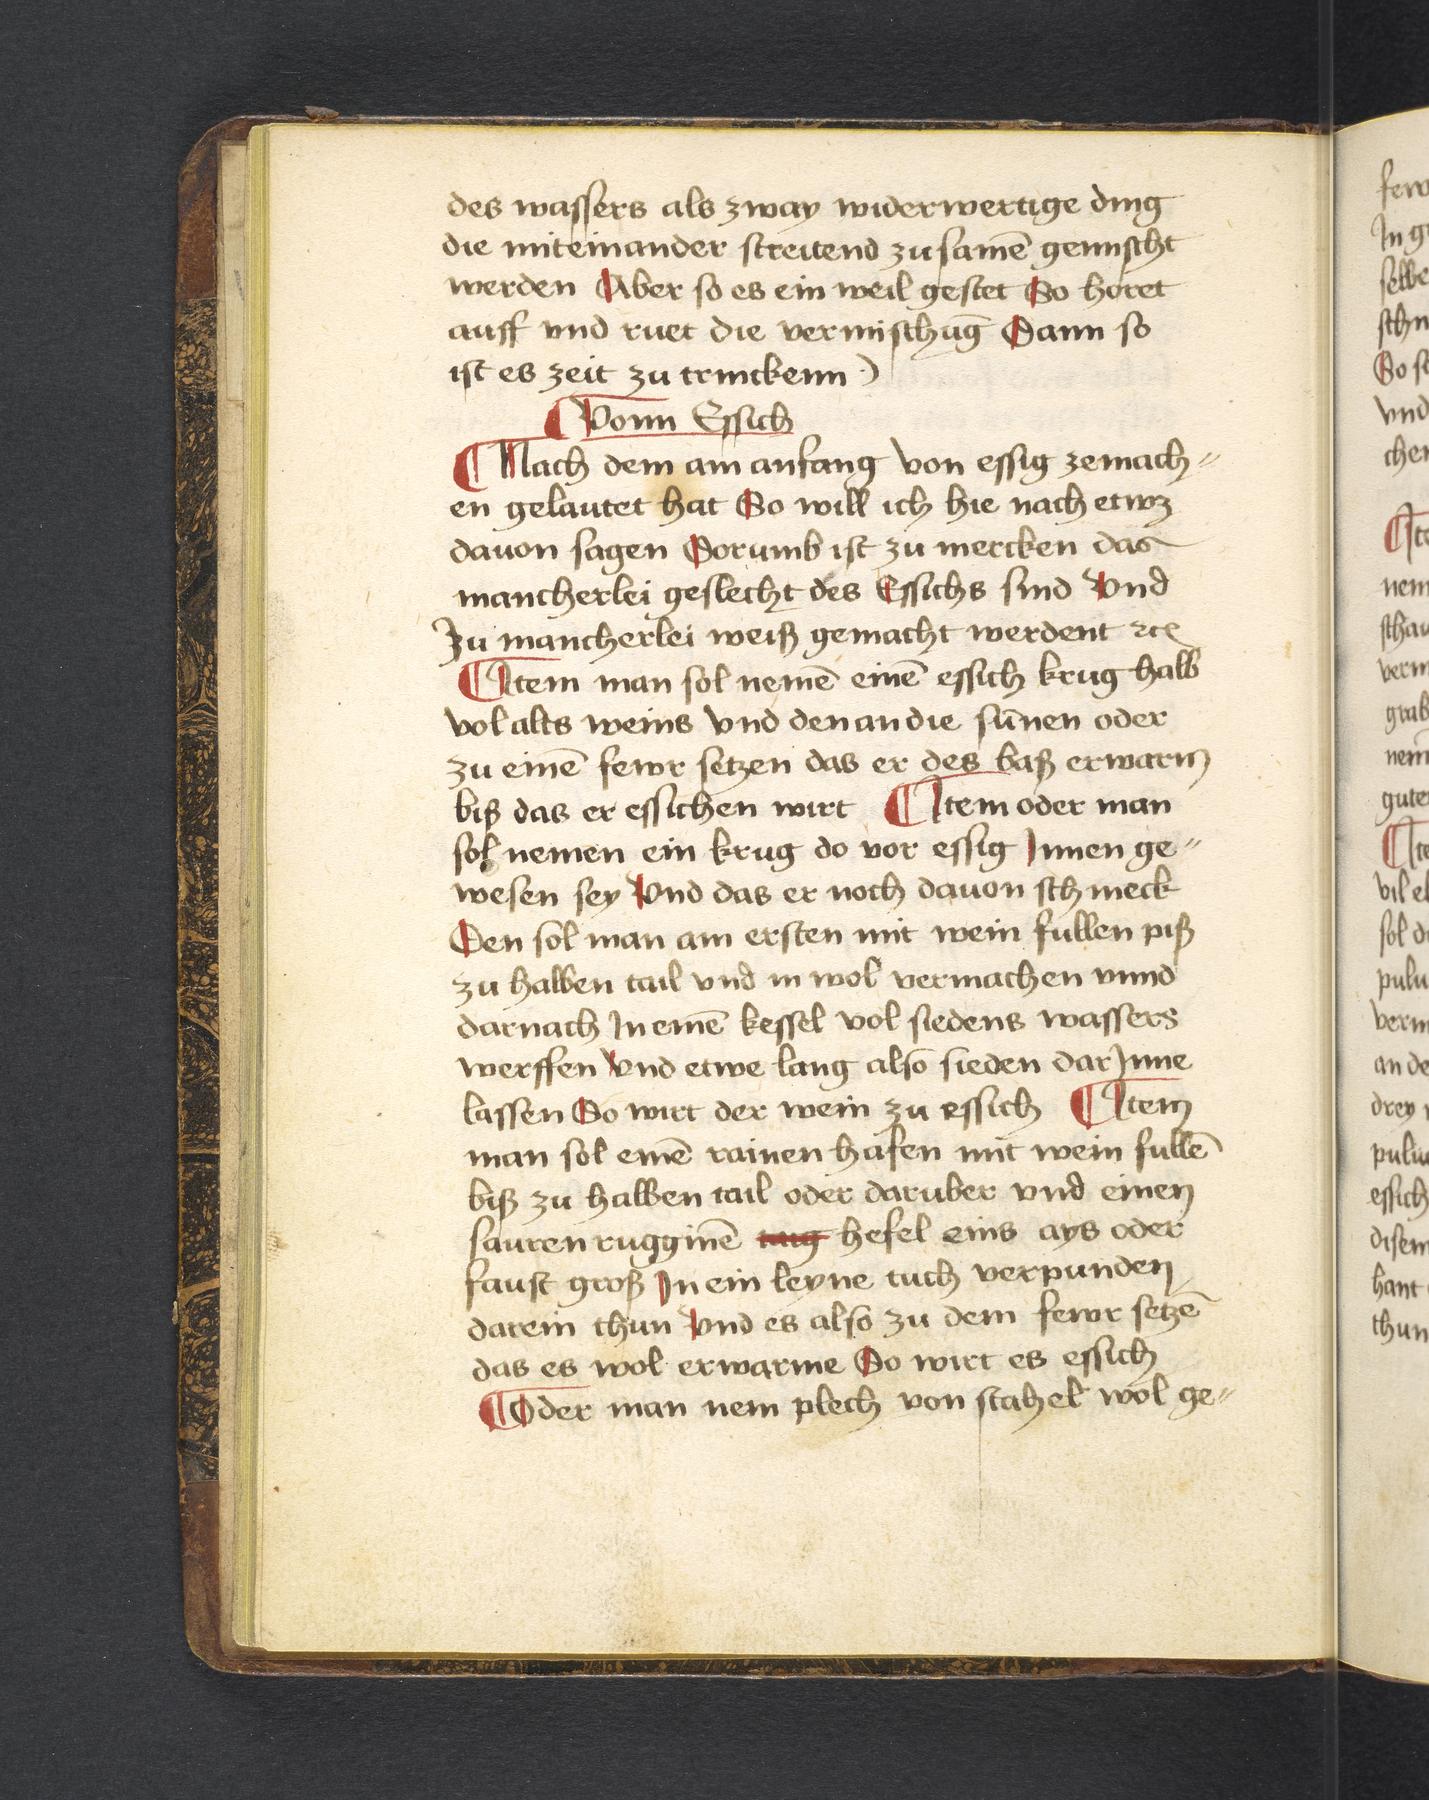 des wassers als zway widerwertige ding
die miteinander streitend zu samē gemischt
werden Aber so es ein weil gestet So horet
auff vnd ruet die vermischūg Dann so
ist es zeit zu trinckenn
¶ Vonn Essich
¶ Nach dem am anfang von essig zemach〃
en gelautet hat So will ich hie nach etwz
dauon sagen Dorumb ist zu mercken das
mancherlei geslecht des Essichs sind Vnd
Zu mancherlei weiß gemacht werdent ꝛcꝭ
¶ Item man sol nemē einē essich krug halb
vol alts weins Vnd den an die sūnen oder
zu einē fewr setzen das er des baß erwarm
biß das er essichen wirt ¶ Item oder man
sol nemen ein krug do vor essig Innen ge〃
wesen sey Vnd das er noch dauon schmeck
Den sol man am ersten mit wein fullen piß
zu halben tail vnd in wol vermachen vnnd
darnach In einē kessel vol siedens wassers
werffen Vnd etwe lang also sieden dar Inne
lassen So wirt der wein zu essich ¶ Item
man sol einē rainen hafen mit wein fullē
biß zu halben tail oder daruber vnd einen
sauren rugginē hefel eins ays oder
faust groß In ein leyne tuch verpunden
darein thun Vnd es also zu dem fewr setzē
das es wol erwarme So wirt es essich
¶ Oder man nem plech von stahel wol ge〃